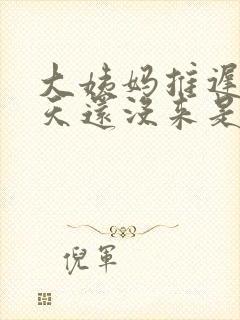 大姨妈推迟
天还没来是
倪军